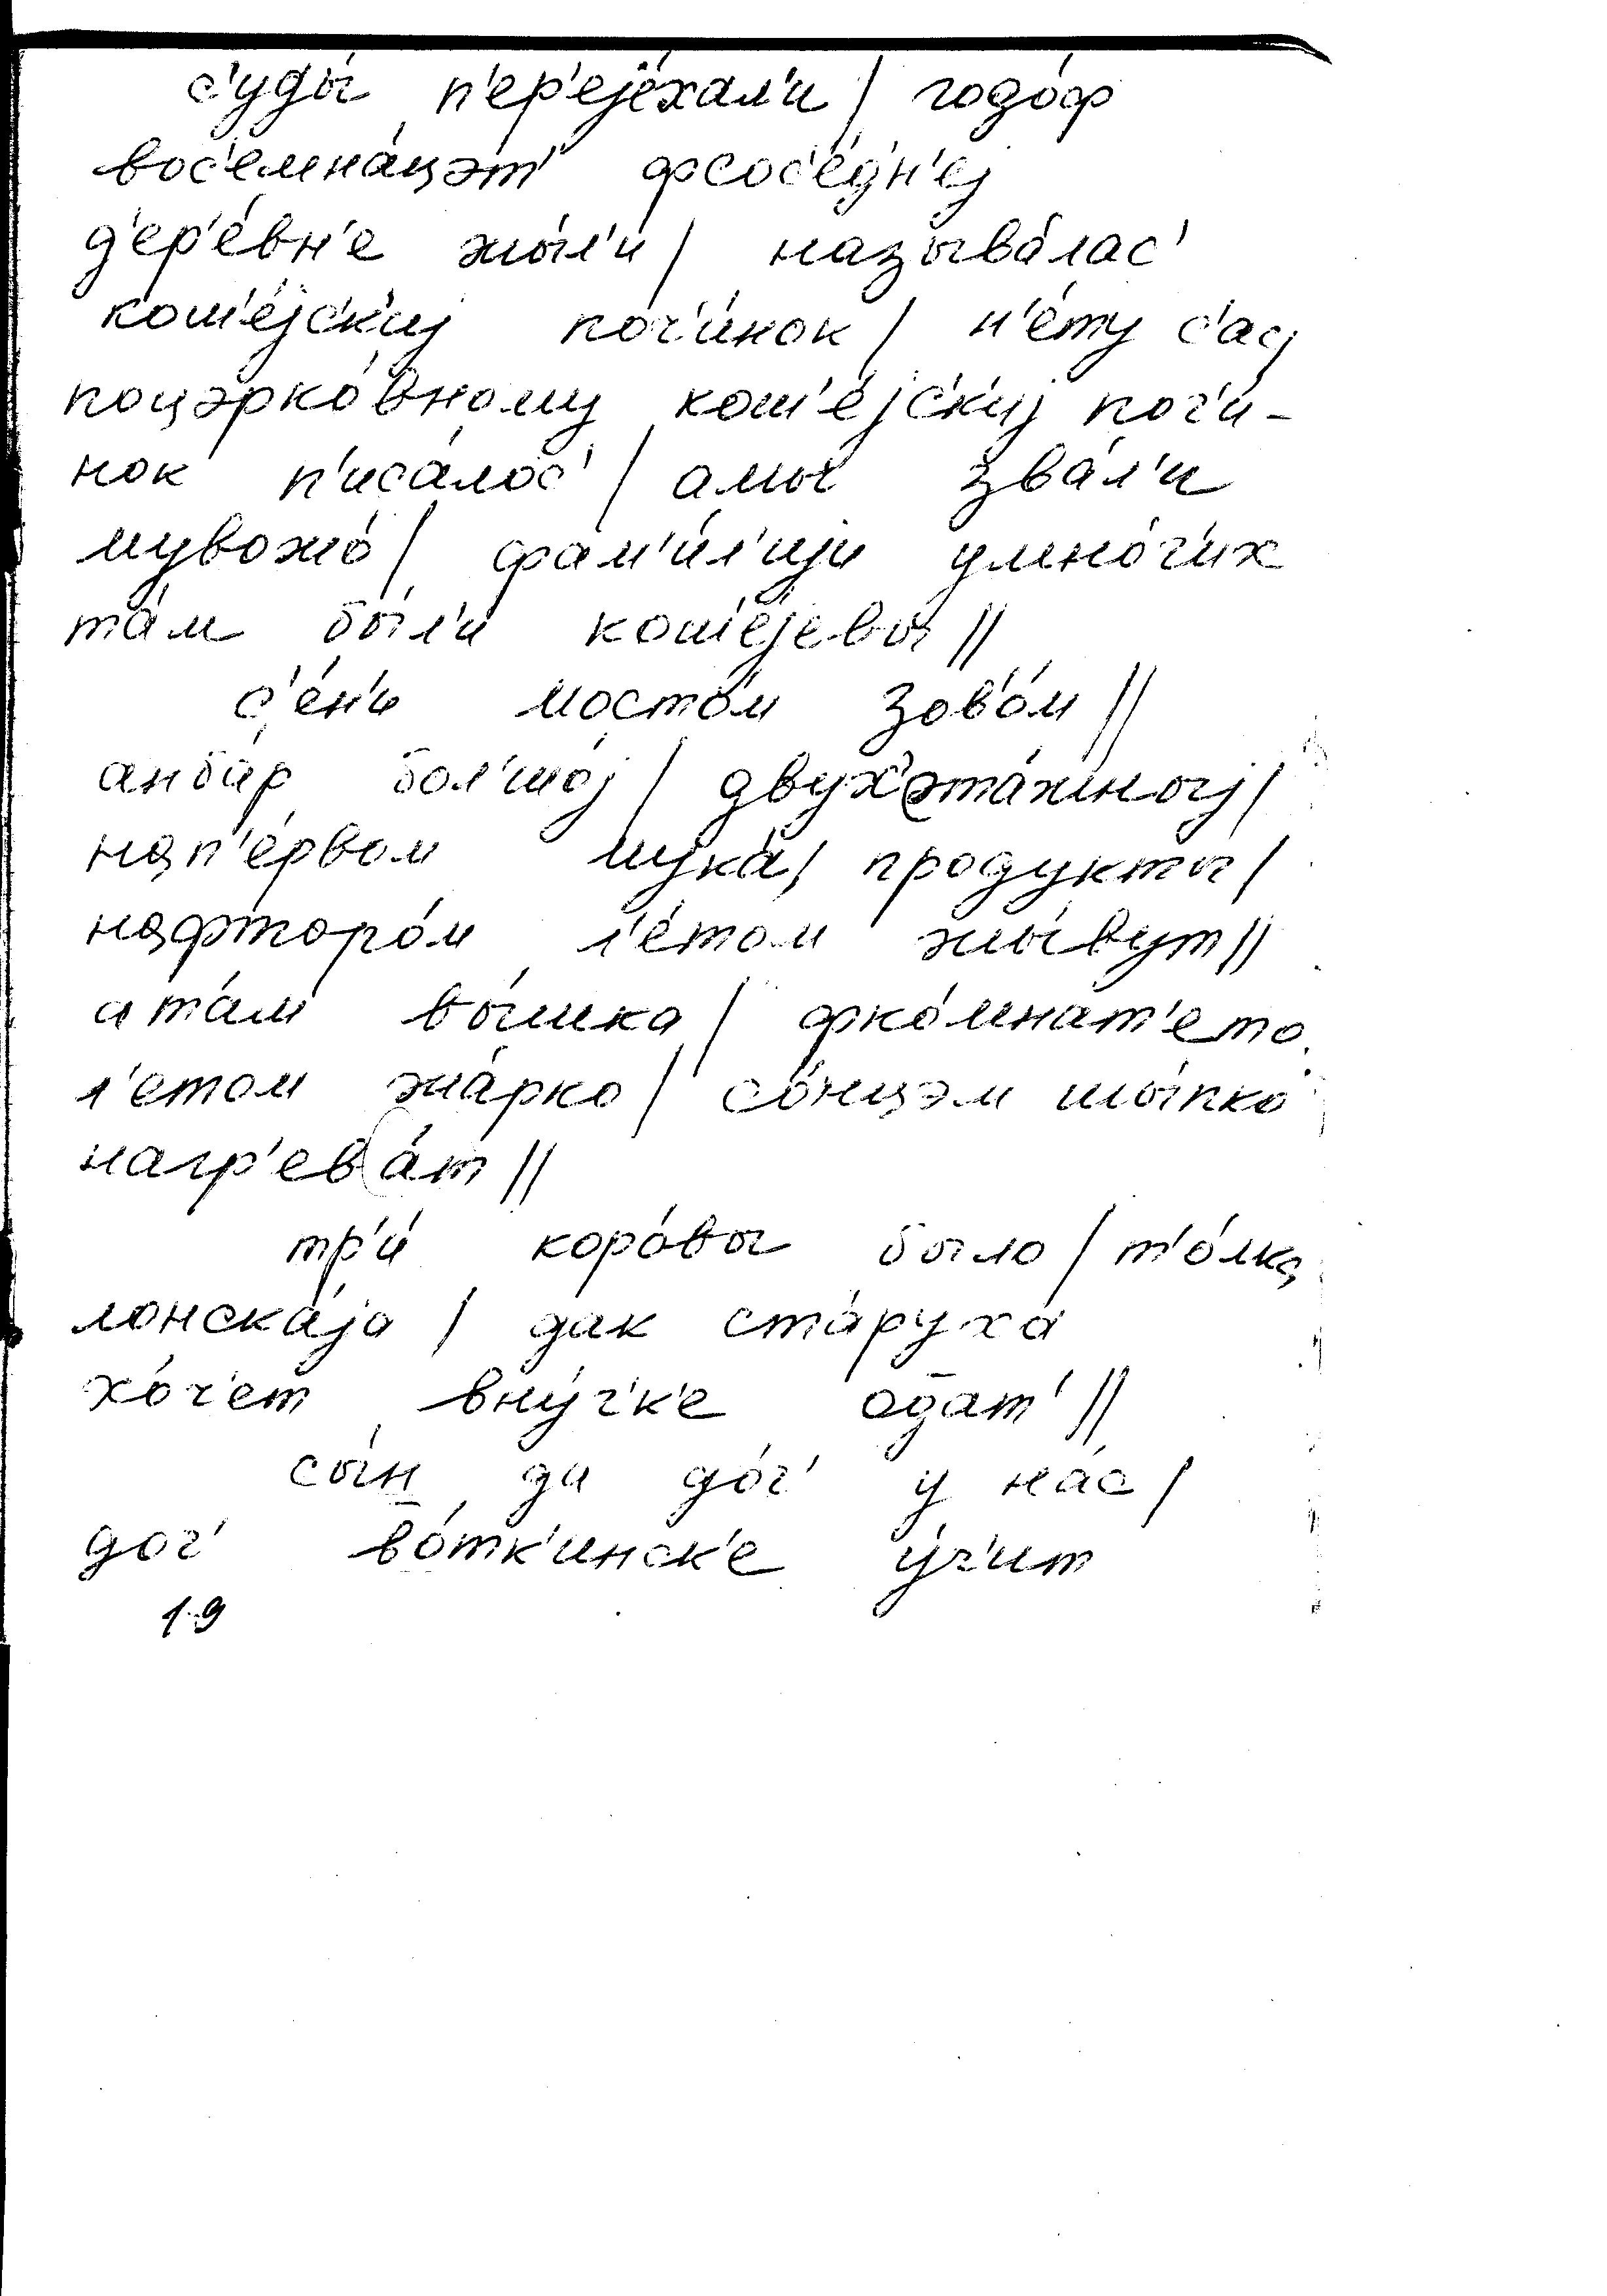 с'уды́ п'ер'еjе́хал'и / годо́ф
вос'емна́цэт' фсос'е́дн'еj
д'ер'е́вн'е жы́л'и / называ́лас'
кот'е́jск'иj поч'и́нок / н'е́ту с'ас
поцэрко́вному кот'е́jск'иj поч'и́-
нок п'иса́лос' / амы зва́л'и
мувожо́ / фам'и́л'иjи умно́г'их
та́м бы́л'и кот'е́jевы //
с'е́н'и мосто́м зов'о́м //
анба́р бол'шо́j / двухэта́жныj /
нап'е́рвом мука́ / продукты /
нафторо́м л'е́том жы́вут //
ата́м вы́шка / фко́мнат'ето
л'етом жа́рко / со́нцэм шы́пко
нагр'ева́т //
тр'и́ коро́вы было / т'о́лка
лонска́jа / дак ста́руха́
хо́ч'ет вну́ч'к'е одат' //
сы́н да до́ч' у на́с /
доч' во́тк'инск'е у́ч'ит
19